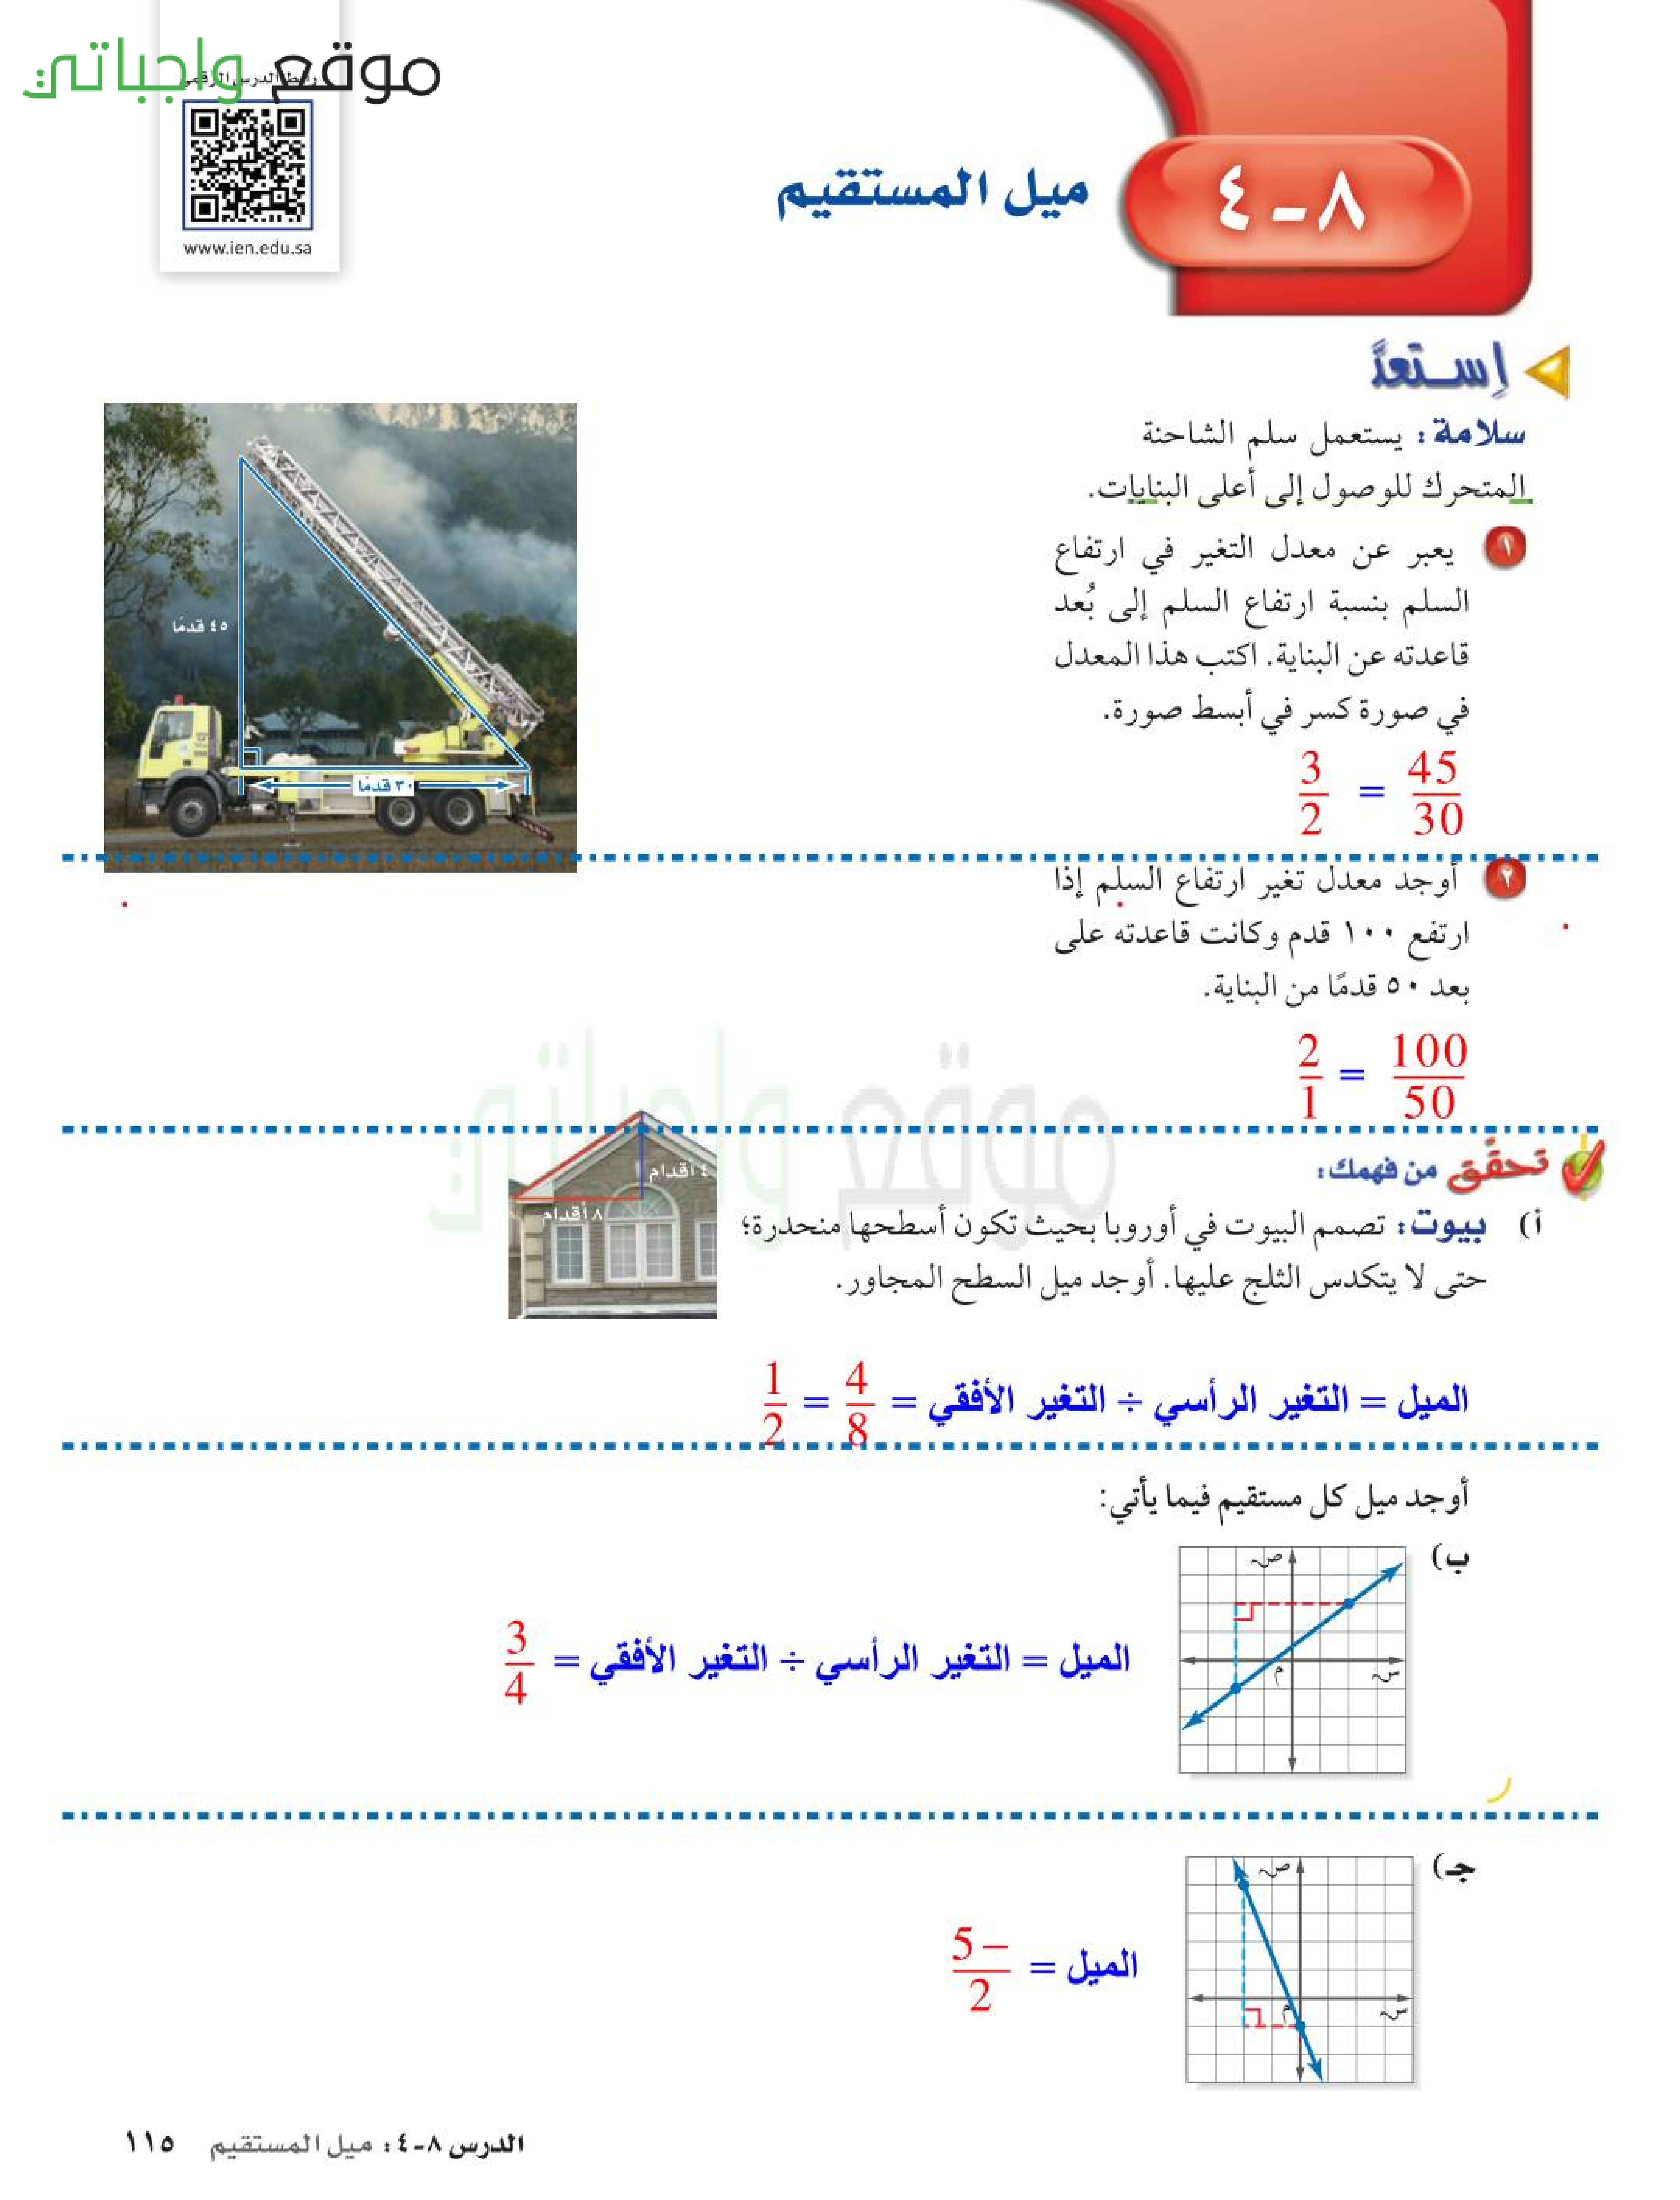 موقع واجباتي
رابط الدرس الرقمي
www.ien.edu.sa
٨-٤
ميل المستقيم
اِستعدَّ
سلامة: يستعمل سلم الشاحنة
المتحرك للوصول إلى أعلى البنايات.
١ يعبر عن معدل التغير في ارتفاع
السلم بنسبة ارتفاع السلم إلى بُعد
قاعدته عن البناية. اكتب هذا المعدل
في صورة كسر في أبسط صورة.
٤٥ قدمًا
٣٠ قدمًا
45/30 = 3/2
٢ أوجد معدل تغير ارتفاع السلم إذا
ارتفع ١٠٠ قدم وكانت قاعدته على
بعد ٥٠ قدمًا من البناية.
100/50 = 2/1
موقع واجباتي
تحقَّق من فهمك:
أ) بيوت: تصمم البيوت في أوروبا بحيث تكون أسطحها منحدرة؛
حتى لا يتكدس الثلج عليها. أوجد ميل السطح المجاور.
٤ أقدام
٨ أقدام
الميل = التغير الرأسي ÷ التغير الأفقي = 4/8 = 1/2
أوجد ميل كل مستقيم فيما يأتي:
ب)
ص
س
م
الميل = التغير الرأسي ÷ التغير الأفقي = 3/4
جـ)
ص
س
م
الميل = 5−/2
الدرس ٨-٤: ميل المستقيم ١١٥